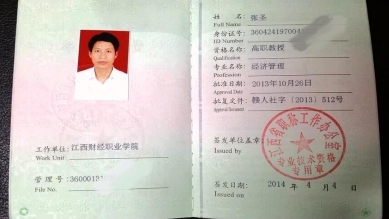 工作单位:江西财经职业学院
Work Unit
管理号:36000131
File No.
姓 名:张圣
Full Name
身份证号:360424197004
ID Number
资格名称:高职教授
Qualification
专业名称:经济管理
Profession
批准日期:2013年10月26日
Approval Date
批复文件:赣人社字〔2013〕512号
Approval Document
签发单位盖章:
Issued by
江西省职称工作办公室
专业技术资格
专用章
签发日期:2014年4月4日
Issued on